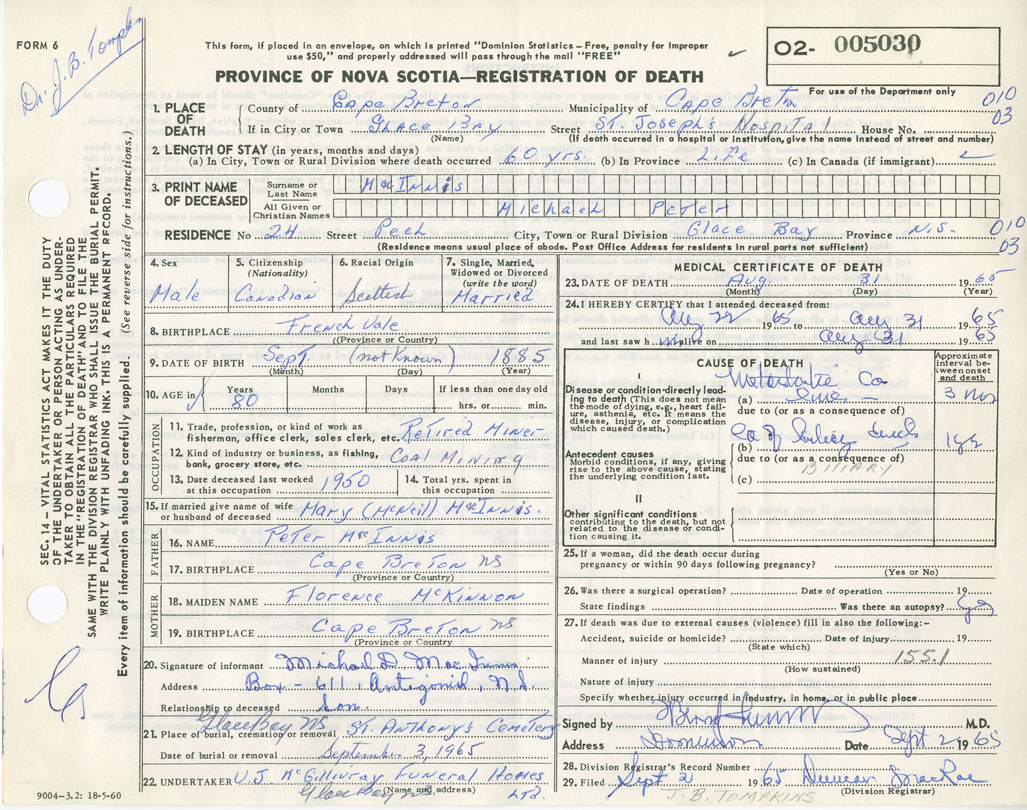 FORM 6
Dr. J. B. Tompkins
This form, if placed in an envelope, on which is printed "Dominion Statistics – Free, penalty for improper
use $50," and properly addressed will pass through the mail "FREE"
02- 005030
For use of the Department only
PROVINCE OF NOVA SCOTIA—REGISTRATION OF DEATH
SEC. 14 – VITAL STATISTICS ACT MAKES IT THE DUTY
OF THE UNDERTAKER OR PERSON ACTING AS UNDER-
TAKER TO OBTAIN ALL THE PARTICULARS REQUIRED
IN THE "REGISTRATION OF DEATH" AND TO FILE THE
SAME WITH THE DIVISION REGISTRAR WHO SHALL ISSUE THE BURIAL PERMIT.
WRITE PLAINLY WITH UNFADING INK. THIS IS A PERMANENT RECORD.
Every item of information should be carefully supplied. (See reverse side for instructions.)
1. PLACE OF DEATH
County of Cape Breton Municipality of Cape Breton 010
If in City or Town Glace Bay Street St. Joseph's Hospital House No. 03
(Name) (If death occurred in a hospital or institution, give the name instead of street and number)
2. LENGTH OF STAY (in years, months and days)
(a) In City, Town or Rural Division where death occurred 60 yrs. (b) In Province Life (c) In Canada (if immigrant)
3. PRINT NAME OF DECEASED
Surname or Last Name MacInnis
All Given or Christian Names Michael Peter
RESIDENCE No 24 Street Peel City, Town or Rural Division Glace Bay Province N.S. 010
(Residence means usual place of abode. Post Office Address for residents in rural parts not sufficient) 03
4. Sex Male
5. Citizenship (Nationality) Canadian
6. Racial Origin Scottish
7. Single, Married, Widowed or Divorced (write the word) Married
8. BIRTHPLACE French Vale
(Province or Country)
9. DATE OF BIRTH Sept (not known) 1885
(Month) (Day) (Year)
10. AGE in Years 80 Months Days If less than one day old hrs. or min.
OCCUPATION
11. Trade, profession, or kind of work as
fisherman, office clerk, sales clerk, etc. Retired Miner
12. Kind of industry or business, as fishing,
bank, grocery store, etc. Coal Mining
13. Date deceased last worked at this occupation 1950
14. Total yrs. spent in this occupation
15. If married give name of wife
or husband of deceased Mary (McNeil) MacInnis.
FATHER
16. NAME Peter MacInnis
17. BIRTHPLACE Cape Breton NS
(Province or Country)
MOTHER
18. MAIDEN NAME Florence McKinnon
19. BIRTHPLACE Cape Breton NS
(Province or Country
20. Signature of informant Michael D. MacInnis
Address Box – 611, Antigonish, N.S.
Relationship to deceased Son.
Glace Bay NS
21. Place of burial, cremation or removal St. Anthony's Cemetery
Date of burial or removal September 3, 1965
22. UNDERTAKER V.J. McGillivray Funeral Homes Ltd.
(Name and address)
Glace Bay NS
9004-3.2: 18-5-60
MEDICAL CERTIFICATE OF DEATH
23. DATE OF DEATH Aug. 31 1965
(Month) (Day) (Year)
24. I HEREBY CERTIFY that I attended deceased from:
Aug 22 1965 to Aug 31 1965
and last saw him alive on Aug 31 1965
CAUSE OF DEATH
Approximate interval between onset and death
I
Disease or condition directly lead-
ing to death (This does not mean
the mode of dying, e.g., heart failure,
asthenia, etc. It means the
disease, injury, or complication
which caused death.)
(a) Metastatic Ca Liver 3 mos
due to (or as a consequence of)
(b) Ca of 1 yr
due to (or as a consequence of)
BILIARY
(c)
Antecedent causes
Morbid conditions, if any, giving
rise to the above cause, stating
the underlying condition last.
II
Other significant conditions
contributing to the death, but not
related to the disease or condi-
tion causing it.
25. If a woman, did the death occur during
pregnancy or within 90 days following pregnancy?
(Yes or No)
26. Was there a surgical operation? Date of operation 19
State findings Was there an autopsy? Yes
27. If death was due to external causes (violence) fill in also the following:–
Accident, suicide or homicide? Date of injury 19
(State which)
Manner of injury 155.1
(How sustained)
Nature of injury
Specify whether injury occurred in industry, in home, or in public place
Signed by M.D.
Address Dominion Date Sept 2 1965
28. Division Registrar's Record Number
29. Filed Sept 2 1965 Duncan MacRae
(Division Registrar)
J. B. TOMPKINS